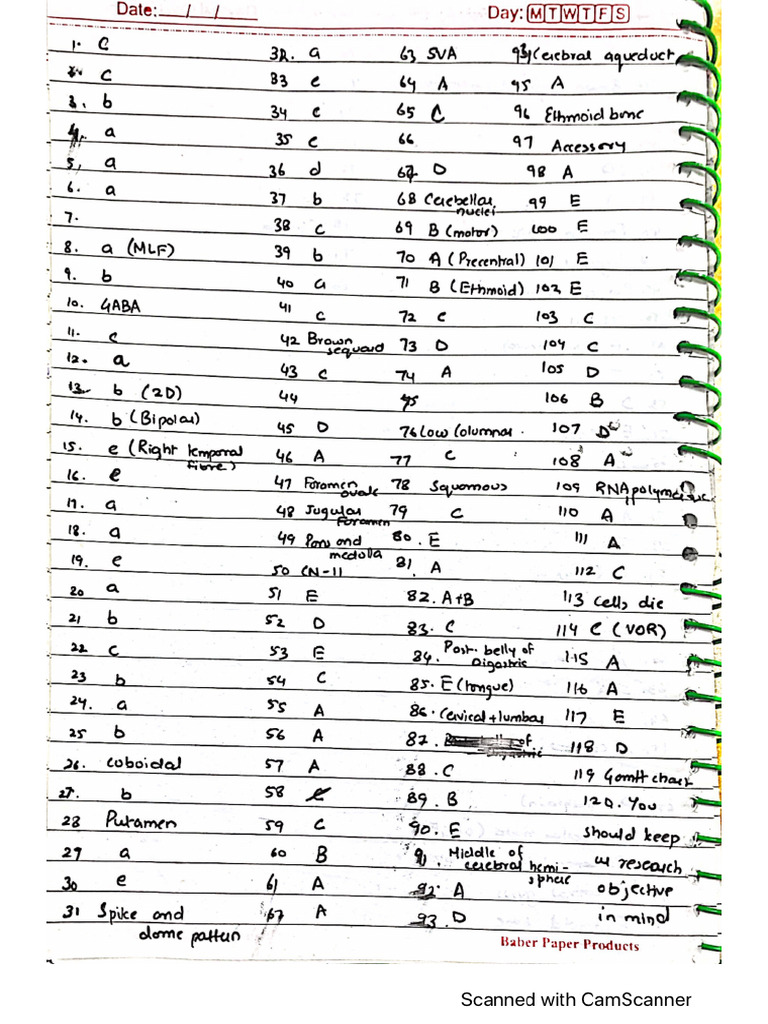 Date: __/__/__ Day: M T W T F S
1. C
2. C
3. b
4. a
5. a
6. a
7.
8. a (MLF)
9. b
10. GABA
11. c
12. a
13. b (2D)
14. b (Bipolar)
15. e (Right temporal
fibre)
16. e
17. a
18. a
19. e
20 a
21 b
22 c
23 b
24. a
25 b
26. coboidal
27. b
28 Putamen
29 a
30 e
31 Spike and
dome pattern
32. a
33 e
34 e
35 e
36 d
37 b
38 c
39 b
40 a
41 c
42 Brown
sequard
43 c
44
45 D
46 A
47 Foramen
ovale
48 Jugular
foramen
49 Pons and
medulla
50 CN-11
51 E
52 D
53 E
54 C
55 A
56 A
57 A
58
59 C
60 B
61 A
62 A
63 SVA
64 A
65 C
66
67 D
68 Cerebellar
nuclei
69 B (motor)
70 A (Precentral)
71 B (Ethmoid)
72 e
73 D
74 A
75
76 Low Columnar.
77 C
78 Squomous
79 C
80. E
81. A
82. A+B
83. C
84. Post. belly of
Digastric
85. E (tongue)
86. Cervical + lumbar
87. of
88. C
89. B
90. E
91. Middle of
cerebral hemi-
sphere
92. A
93. D
93) Cerebral aqueduct
95 A
96 Ethmoid bone
97 Accessory
98 A
99 E
100 E
101 E
102 E
103 C
104 C
105 D
106 B
107 D
108 A
109 RNA polymerase
110 A
111 A
112 C
113 cells die
114 C (VOR)
115 A
116 A
117 E
118 D
119 Gantt chart
120. You
should keep
ur research
objective
in mind
Baber Paper Products
Scanned with CamScanner